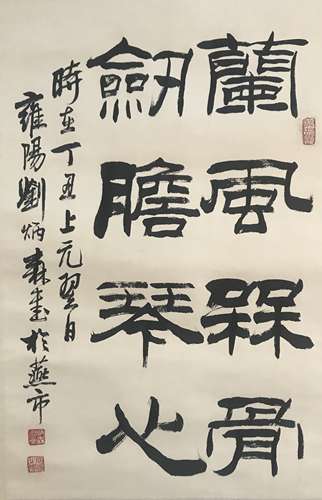 蘭風槑骨
劒膽琴心
時在丁丑上元翌日
雍陽劉炳森書於燕市